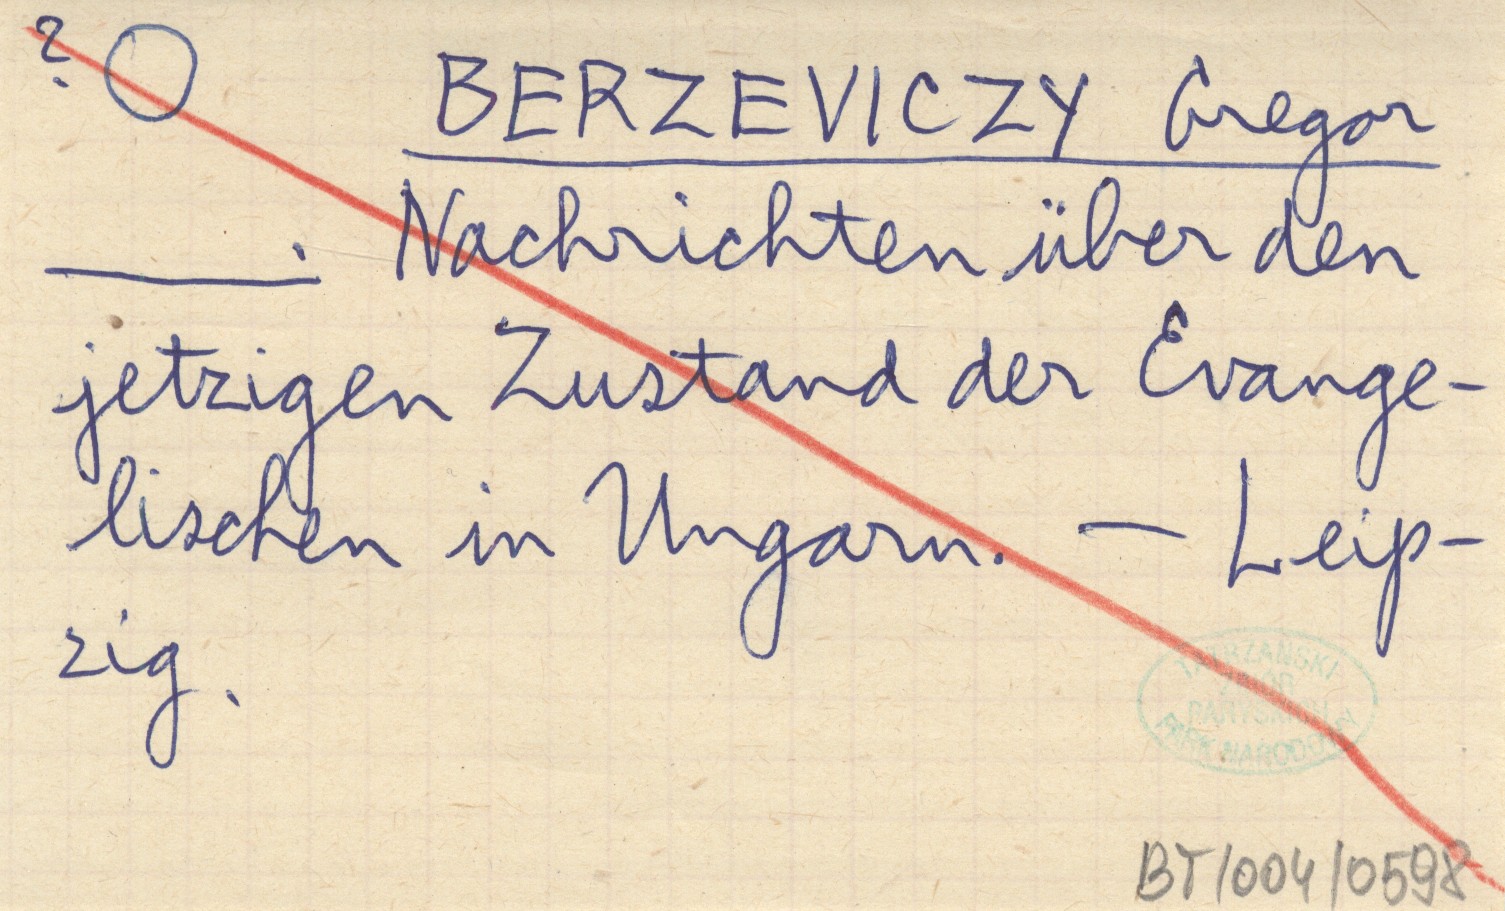 ?
BERZEVICZY Gregor
. Nachrichten über den
jetzigen Zustand der Evange-
lischen in Ungarn. — Leip-
zig.
TATRZAŃSKI
ZBIÓR
PARYSKICH
PARK NARODOWY
BT/004/0598